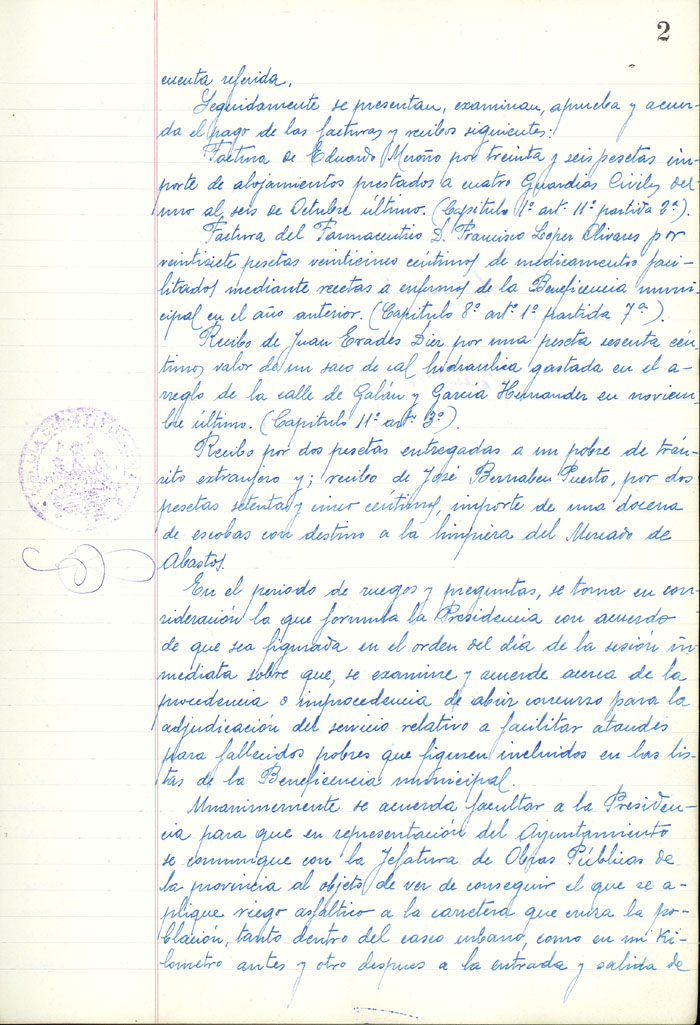 2
cuenta referida.
Seguidamente se presentan, examinan, aprueba y acuer-
da el pago de las facturas y recibos siguientes:
Factura de Eduardo Muroño por treinta y seis pesetas im-
porte de alojamientos prestados a cuatro Guardias Civiles del
uno al seis de Octubre último. (Capitulo 1º art. 11º partida 2ª).
Factura del Farmaceutrio D. Francisco Loper Olivares por
veintisiete pesetas veinticinco céntimos de medicamentos faci-
litados mediante recetas a enfermos de la Beneficencia muni-
cipal en el año anterior. (Capitulo 8º artº 1º partida 7ª).
Recibo de Juan Erades Dier por una peseta sesenta cen-
timos valor de un saco de cal hidraulica gastada en el a-
rreglo de la calle de Galán y Garcia Hernander en noviem-
bre último. (Capitulo 11º artº 3º).
Recibo por dos pesetas entregadas a un pobre de trán-
sito extranjero y; recibo de José Bernabeu Puerto, por dos
pesetas setenta y cinco céntimos, importe de una docena
de escobas con destino a la limpiera del Mercado de
Abastos.
En el periodo de ruegos y preguntas, se toma en con-
sideración la que formula la Presidencia con acuerdo
de que sea figurada en el orden del día de la sesión in-
mediata sobre que, se examine y acuerde acerca de la
procedencia o improcedencia de abrir concurso para la
adjudicación del servicio relativo a facilitar ataudes
para fallecidos pobres que figuren incluidos en las lis-
tas de la Beneficencia municipal.
Unanimemente se acuerda facultar a la Presiden-
cia para que en representación del Ayuntamiento
se comunique con la Jefatura de Obras Públicas de
la provincia al objeto de ver de conseguir el que se a-
plique riego asfáltico a la carretera que cruza la po-
blación, tanto dentro del casco urbano, como en un Ki-
lometro antes y otro despues a la entrada y salida de